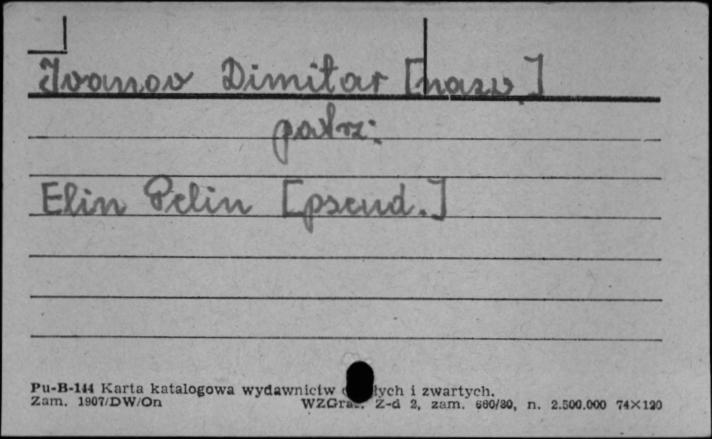 Ivanov Dimitar [nazw.]
patrz:
Elin Pelin [pseud.]
Pu-B-144 Karta katalogowa wydawnictw ciągłych i zwartych.
Zam. 1907/DW/On WZGraf. Z-d 2, zam. 660/80, n. 2.500.000 74×120